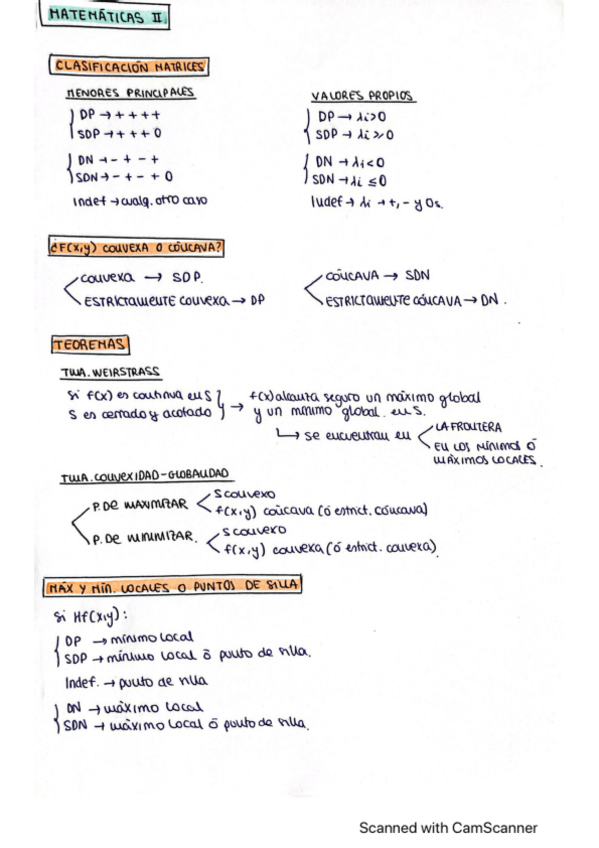 MATEMÁTICAS II
CLASIFICACIÓN MATRICES
MENORES PRINCIPALES
DP → + + + +
SDP → + + + 0
DN → - + - +
SDN → - + - + 0
Indef → cualq. otro caso
VALORES PROPIOS
DP → λi>0
SDP → λi ≥ 0
DN → λi<0
SDN → λi ≤ 0
Indef → λi → +, - y 0s.
¿F(x,y) CONVEXA O CÓNCAVA?
CONVEXA → SDP.
ESTRICTAMENTE CONVEXA → DP
CÓNCAVA → SDN
ESTRICTAMENTE CÓNCAVA → DN.
TEOREMAS
TMA. WEIRSTRASS
Si f(x) es continua en S
S es cerrado y acotado
→ f(x) alcanza seguro un máximo global
y un mínimo global en S.
↳ se encuentran en
LA FRONTERA
EN LOS MÍNIMOS Ó
MÁXIMOS LOCALES.
TMA. CONVEXIDAD-GLOBALIDAD
P. DE MAXIMIZAR
S convexo
f(x,y) cóncava (ó estrict. cóncava)
P. DE MINIMIZAR.
S convexo
f(x,y) convexa (ó estrict. convexa)
MÁX Y MÍN. LOCALES O PUNTOS DE SILLA
Si Hf(x,y):
DP → mínimo local
SDP → mínimo local ó punto de silla.
Indef. → punto de silla
DN → máximo local
SDN → máximo local ó punto de silla.
Scanned with CamScanner